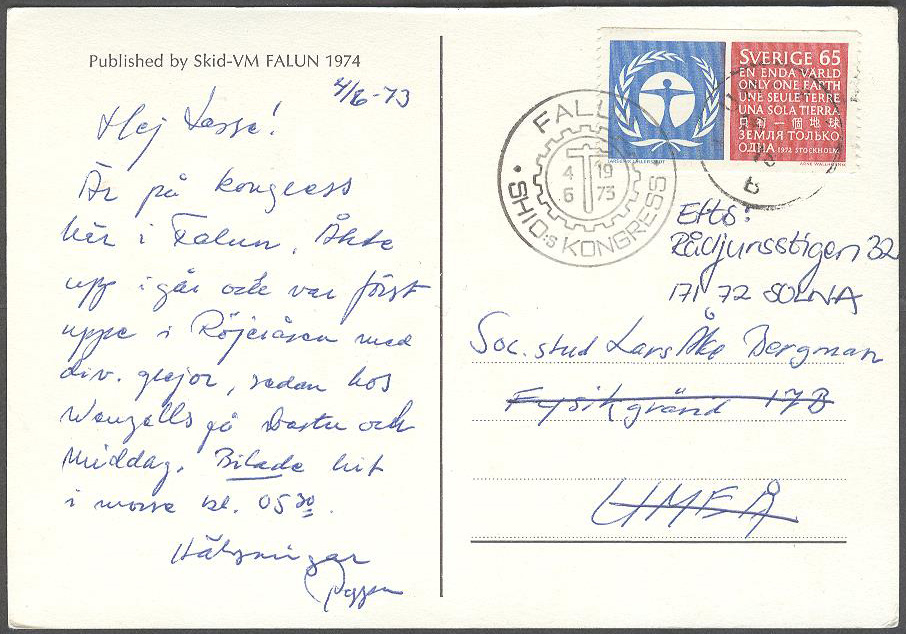 Published by Skid-VM FALUN 1974
4/6-73
Hej Lasse!
Är på kongress
här i Falun. Åkte
upp i går och var först
uppe i Röjeråsen med
div. grejor, sedan hos
på Bastu och
Middag. Bilade hit
i morse kl. 05 30.
Hälsningar
Pappa
FALUN
4 19
6 73
SHIO:s KONGRESS
SVERIGE 65
EN ENDA VÄRLD
ONLY ONE EARTH
UNE SEULE TERRE
UNA SOLA TIERRA
只有一個地球
ЗЕМЛЯ ТОЛЬКО
ОДНА 1972 STOCKHOLM
Efts:
Rådjursstigen 32
171 72 SOLNA
6
Soc. stud Lars Åke Bergman
Fysikgränd 17B
UMEÅ